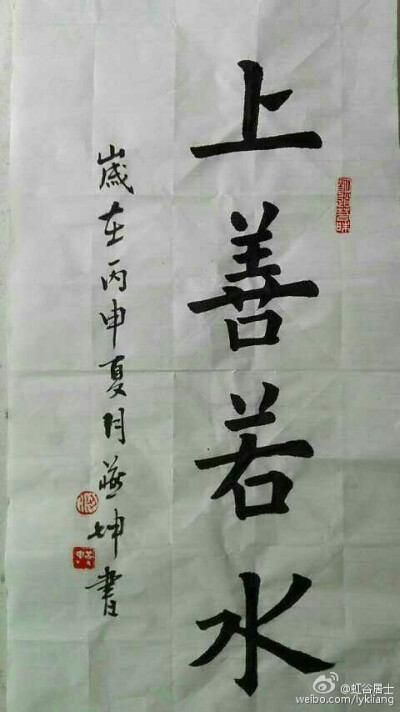 上善若水
嵗在丙申夏月坤書
@虹谷居士
weibo.com/lykliang